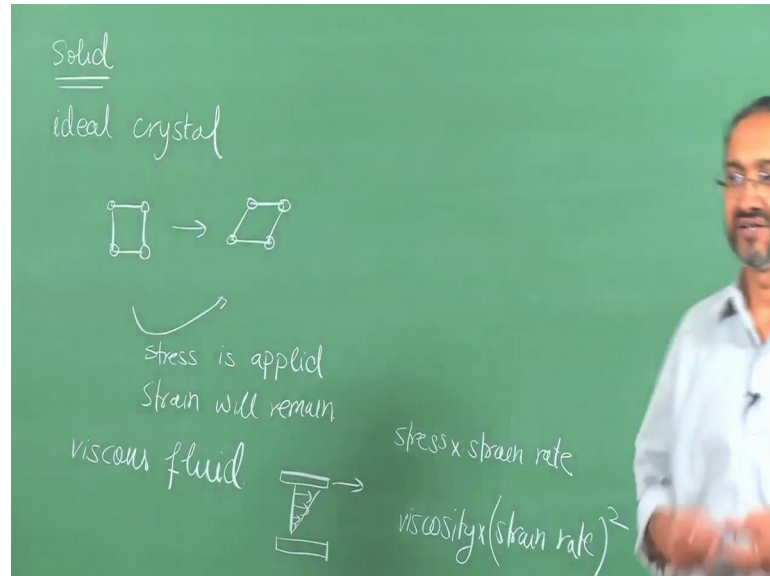 Solid
ideal crystal
stress is applid
Strain will remain
viscous fluid
stress x strain rate
viscosity x (strain rate)²